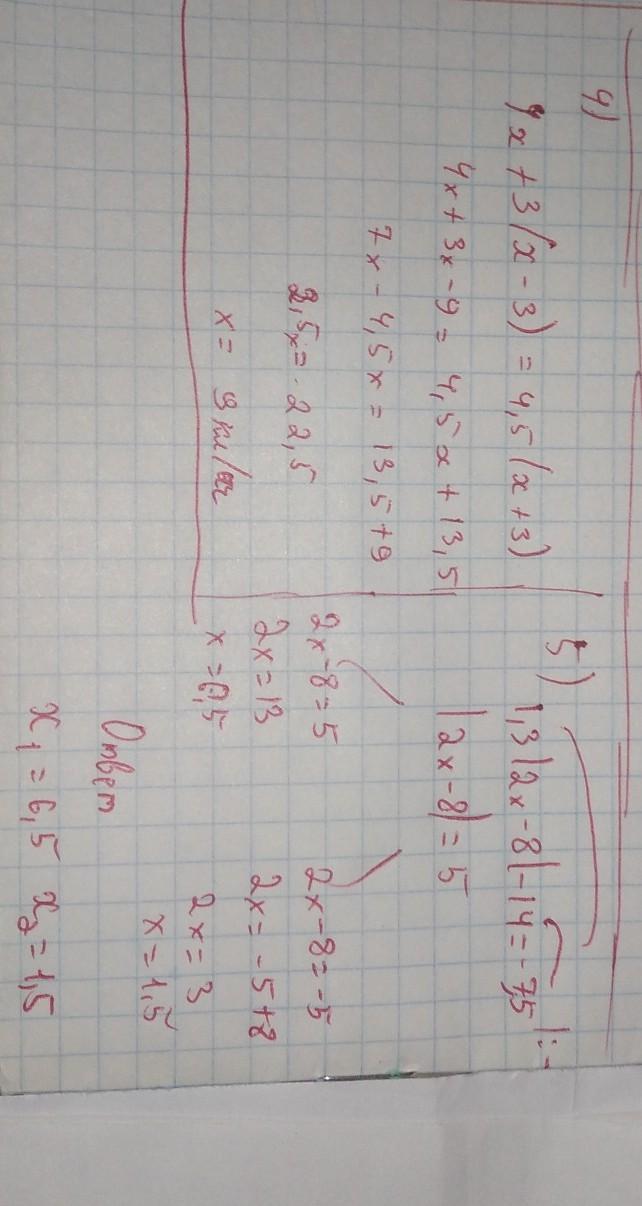 4)
4x + 3(x - 3) = 4,5(x + 3)
4x + 3x - 9 = 4,5x + 13,5
7x - 4,5x = 13,5 + 9
2,5x = 22,5
x = 9 км/
5)
1,3|2x - 8| - 14 = -7,5 |: -
|2x - 8| = 5
2x - 8 = 5
2x = 13
x = 6,5
2x - 8 = -5
2x = -5 + 8
2x = 3
x = 1,5
Ответ
x₁ = 6,5 x₂ = 1,5